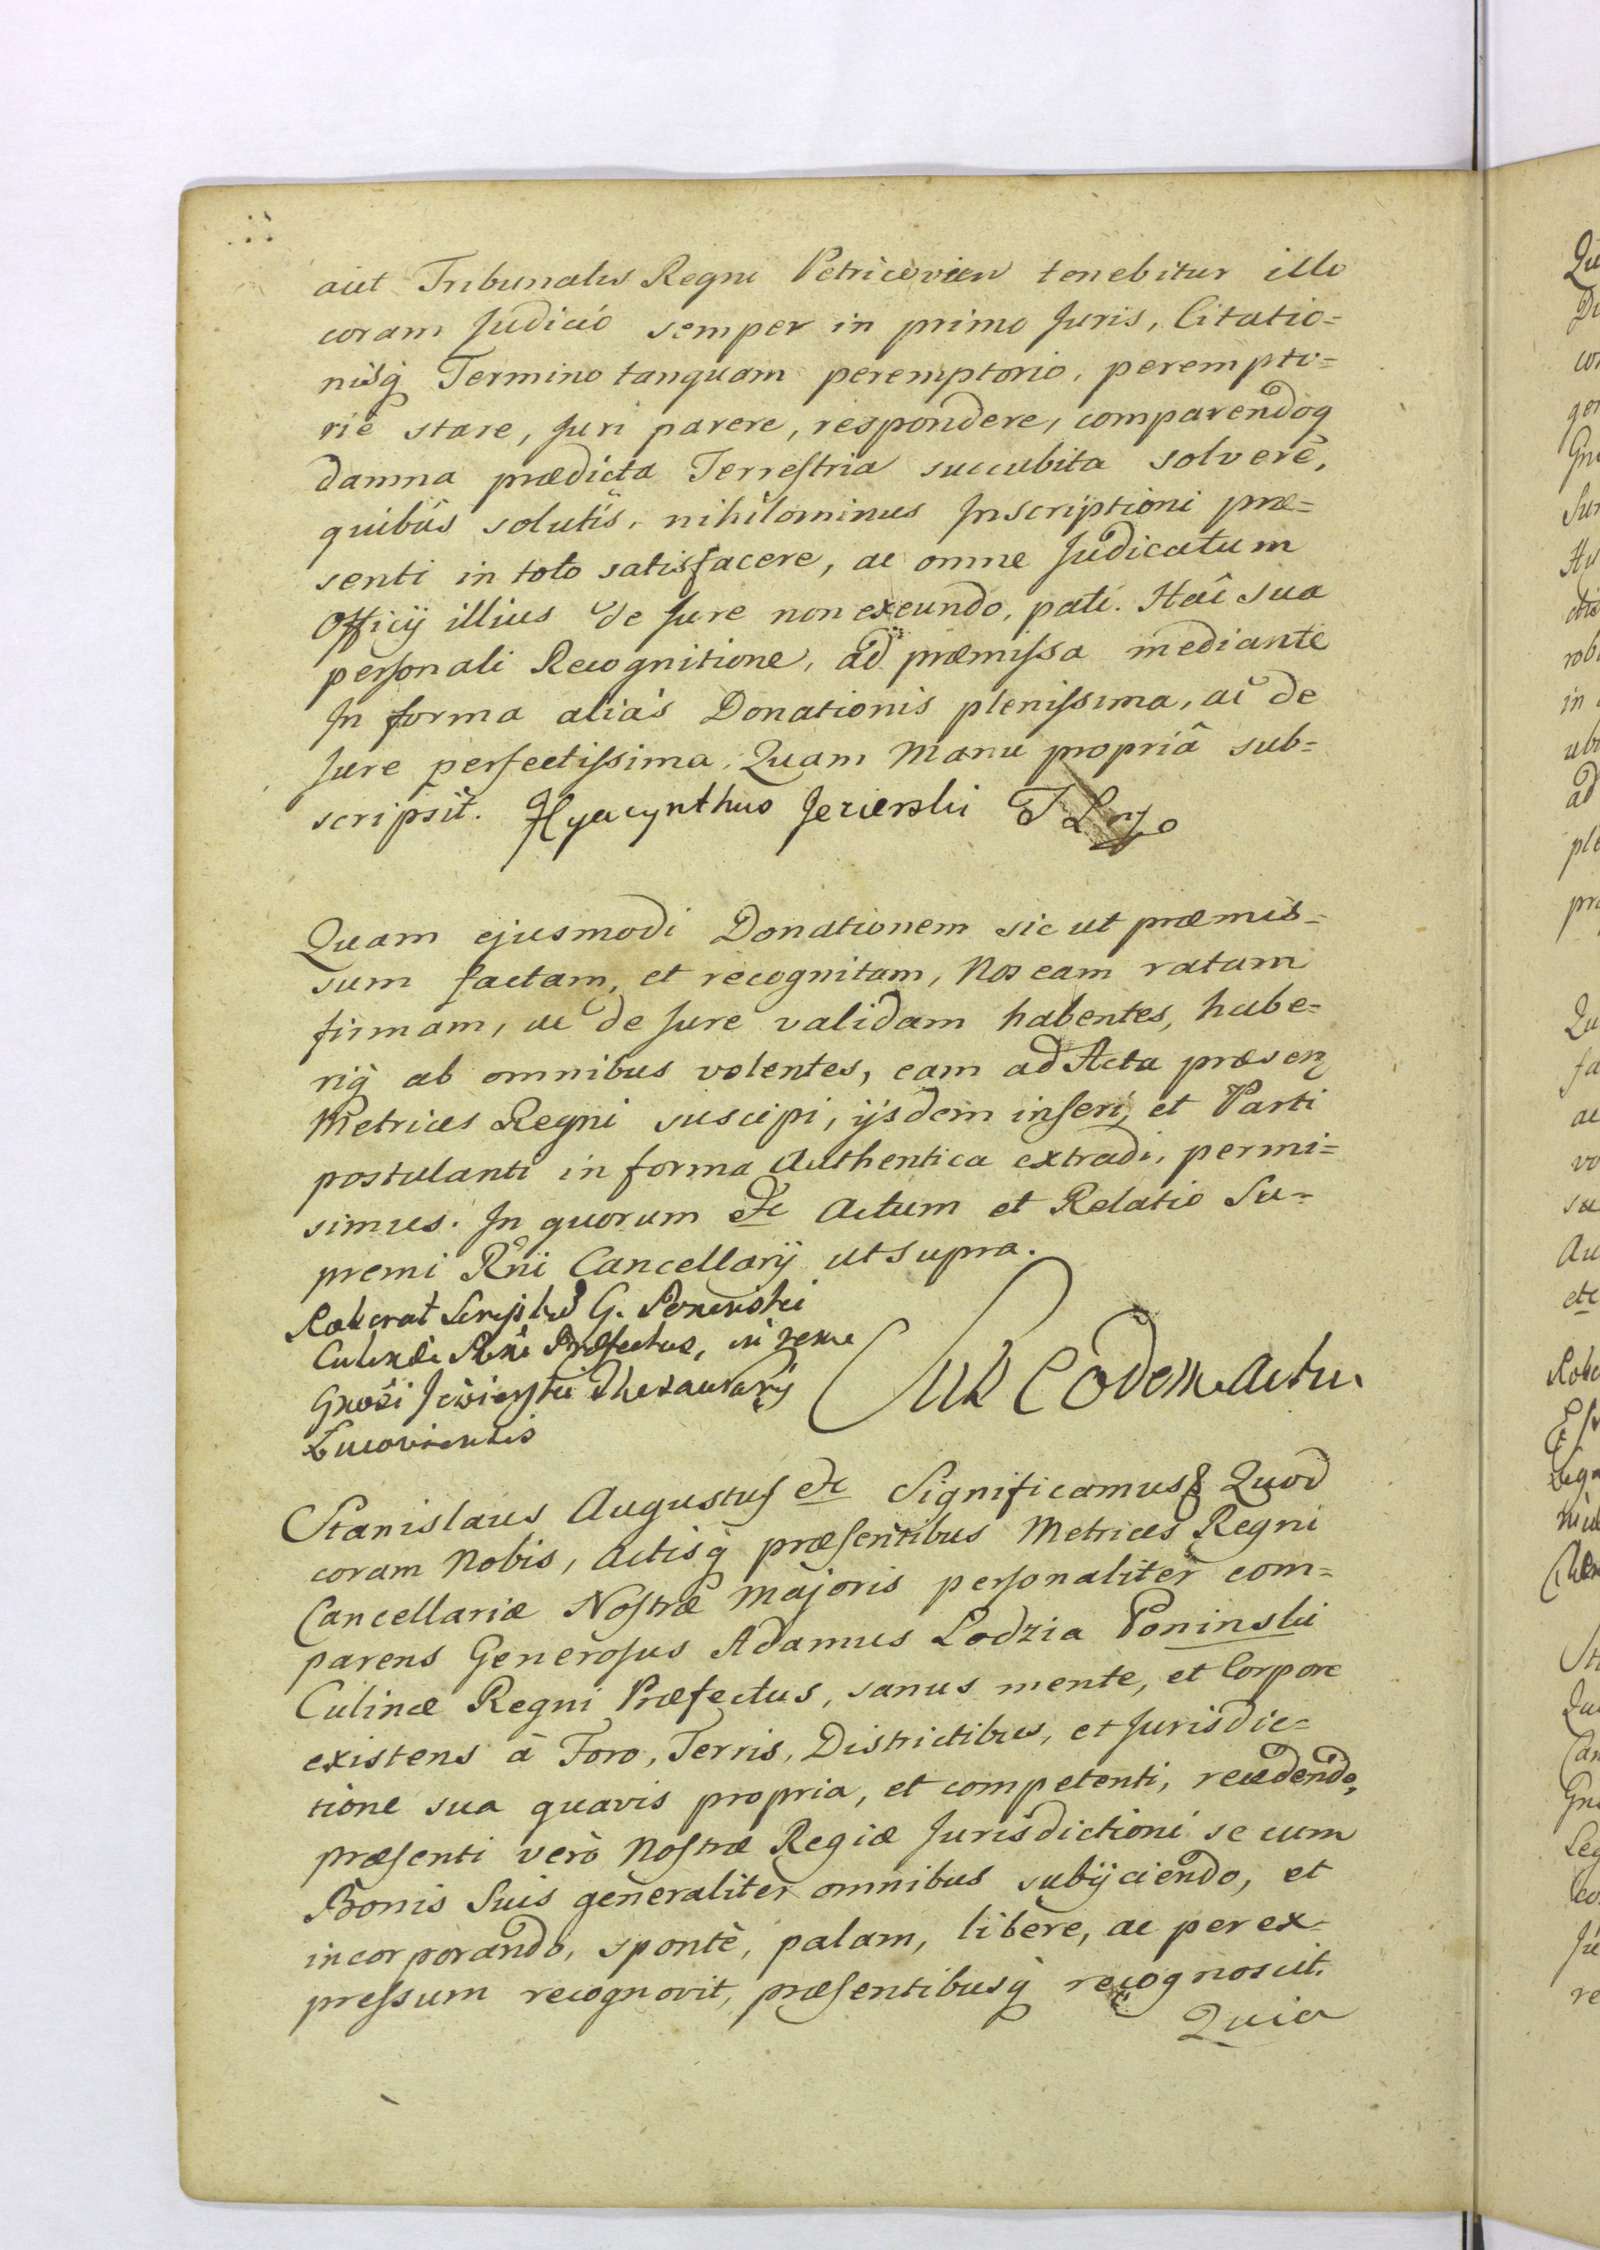 aut Tribunalis Regni Petricovien tenebitur illo
coram Judicio semper in primo Juris, Citatio=
nisq Termino tanquam peremptorio, perempto=
rie stare, Juri parere, respondere, comparendoq
damna prædicta Terrestria succubita solvere,
quibus solutis, nihilominus Inscriptioni præ=
senti in toto satisfacere, ac omne Judicatum
Officij illius de Jure non exeundo, pati. Hac sua
personali Recognitione, ad præmissa mediante
In forma alias Donationis plenissima, ac de
Jure perfectissima. Quam Manu propriâ sub=
scripsit. Hyacynthus Jezierski T Ł
Quam ejusmodi Donationem sic ut præmis=
sum factam, et recognitam, Nos eam ratam
firmam, ac de Jure validam habentes, habe=
riq ab omnibus volentes, eam ad Acta præsen
Metrices Regni suscipi, ijsdem inseri, et Parti
postulanti in forma Authentica extradi, permi=
simus. In quorum etc Actum et Relatio Su=
premi Rni Cancellarij ut supra.
Roborat Scriptus G. Poninski
Culinæ Rni Præfectus, in rem
Gnosi Jezierski Thesaurarij
Łucoviensis
Sub Eodem Actu.
Stanislaus Augustus etc Significamus Quod
coram Nobis, Actisq præsentibus Metrices Regni
Cancellariæ Nostræ Majoris personaliter com=
parens Generosus Adamus Lodzia Poninski
Culinæ Regni Præfectus, sanus mente, et Corpore
existens à Foro, Terris, Districtibus, et Jurisdic=
tione sua quavis propria, et competenti, recedendo,
præsenti verò Nostræ Regiæ Jurisdictioni se cum
Bonis Suis generaliter omnibus subijciendo, et
incorporando, spontè, palam, liberè, ac per ex=
pressum recognovit, præsentibusq recognoscit.
Quia